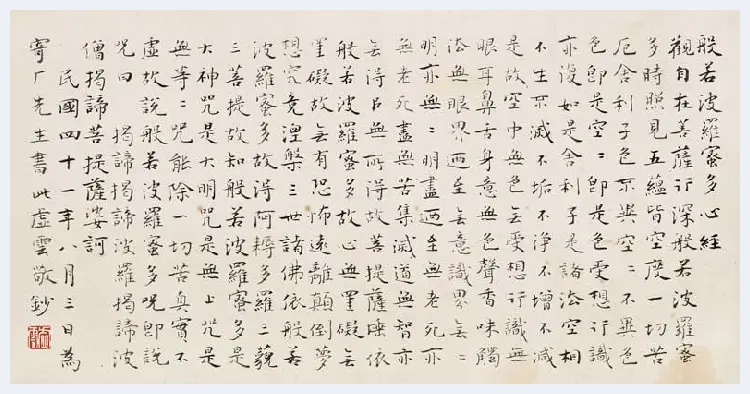 般若波羅蜜多心經
觀自在菩薩行深般若波羅蜜
多時照見五蘊皆空度一切苦
厄舍利子色不異空〻不異色
色即是空〻即是色受想行識
亦復如是舍利子是諸法空相
不生不滅不垢不淨不增不減
是故空中無色无受想行識無
眼耳鼻舌身意無色聲香味觸
法無眼界迺至无意識界无〻
明亦無〻明盡迺至無老死亦
無老死盡無苦集滅道無智亦
无得㠯無所得故菩提薩埵依
般若波羅蜜多故心無罣礙无
罣礙故无有恐怖遠離顛倒夢
想究竟涅槃三世諸佛依般若
波羅蜜多故得阿耨多羅三藐
三菩提故知般若波羅蜜多是
大神咒是大明咒是無上咒是
無等〻咒能除一切苦真實不
虛故說般若波羅蜜多咒即說
咒曰 揭諦揭諦波羅揭諦波
僧揭諦菩提薩婆訶
民國四十一年八月三日為
厂先生書此虛雲敬鈔